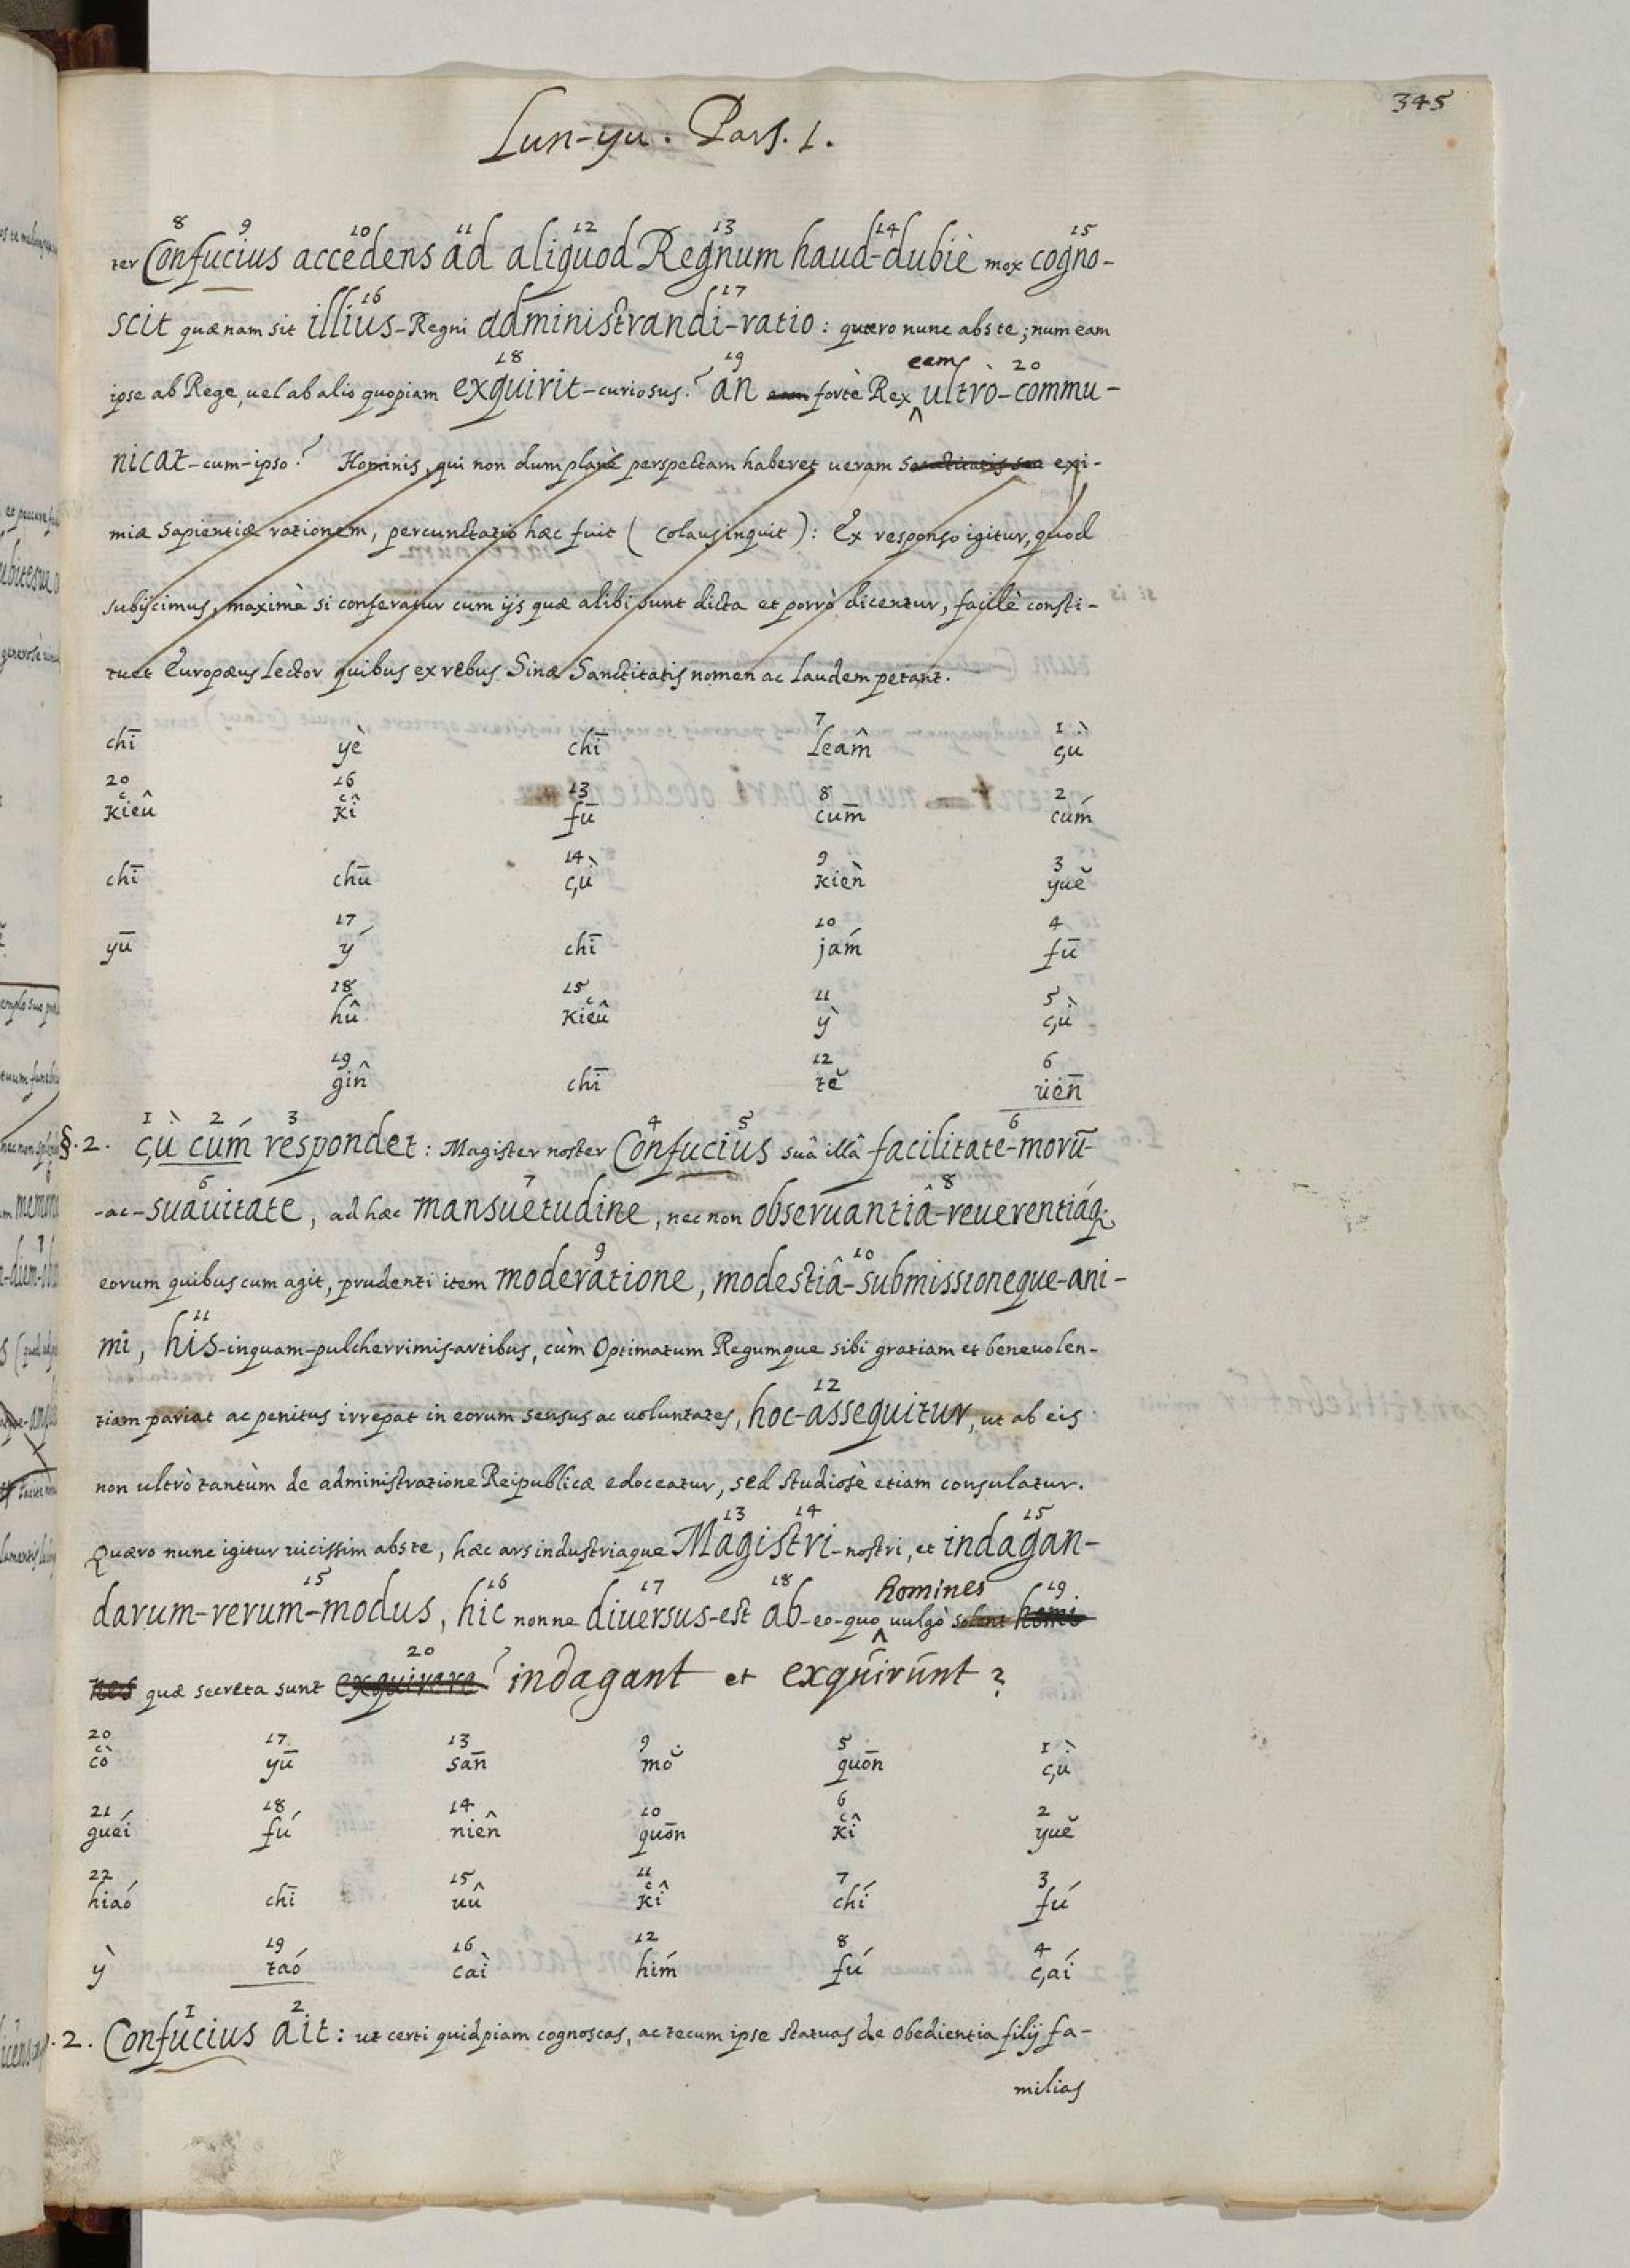 345
Lun-yu. Pars. 1.
8 9 10 11 12 13 14 15
ter Confucius accedens ad aliquod Regnum haud-dubiè mox cogno-
16 17
scit quænam sit illius-Regni administrandi-ratio: quæro nunc abs te; num eam
18 19 eam 20
ipse ab Rege, uel ab alio quopiam exquirit-curiosus? an eam fortè Rex ultrò-commu-
nicat-cum-ipso? Hominis, qui non dum planè perspectam haberet ueram Sanctitatis seu exi-
miæ sapientiæ rationem, percunctatio hæc fuit (Colaus inquit): Ex responso igitur, quod
subijcimus, maximè si conferatur cum ijs quæ alibi sunt dicta et porrò dicentur, facilè consti-
tuet Europæus Lector quibus ex rebus Sinæ Sanctitatis nomen ac laudem petant.
7 1
chī yè chī leâm çù
20 16 13 8 2
kieû kî fū cūm cúm
14 9 3
chī chū çù kièn yuĕ
17 10 4
yū ý chī jám fū
18 15 11 5
hû kieû ỳ çù
19 12 6
gîn chī tĕ uēn
1 2 3 4 5 6
§. 2. çù cúm respondet: Magister noster Confucius suâ illâ facilitate-morū-
6 7 8
-ac-suauitate, ad hæc mansuetudine, nec non obseruantiâ-reuerentiáq.
9 10
eorum quibus cum agit, prudenti item moderatione, modestiâ-submissioneque-ani-
11
mi, his-inquam-pulcherrimis-artibus, cùm Optimatum Regumque sibi gratiam et beneuolen-
12
tiam pariat ac penitus irrepat in eorum sensus ac uoluntates, hoc-assequitur, ut ab eis
non ultrò tantùm de administratione Reipublicæ edoceatur, sed studiosè etiam consulatur.
13 14 15
Quæro nunc igitur uicissim abs te, hæc ars industriaque Magistri-nostri, et indagan-
15 16 17 18 homines 19
darum-rerum-modus, hic nonne diuersus-est ab-eo-quo uulgò solent homi
20
nes quæ secreta sunt exquirere? indagant et exquirunt?
20 17 13 9 5 1
cò yū sān mŏ quōn çù
21 18 14 10 6 2
guéi fú niên quōn kî yuĕ
22 15 11 7 3
hiaó chī uû kî chí fú
19 16 12 8 4
ỳ taó caì hím fú çaí
1 2
§. 2. Confucius ait: ut certi quidpiam cognoscas, ac tecum ipse statuas de obedientia filij fa-
milias